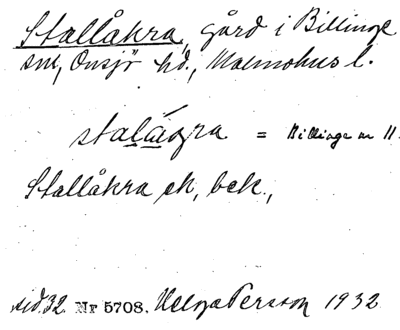 Stallåkra, gård i Billinge
sn, Onsjö hd., Malmöhus l.
stalågra = Billinge nr 11.
Stallåkra ek, bek.,
sid. 32. Nr 5708. Helga Persson 1932